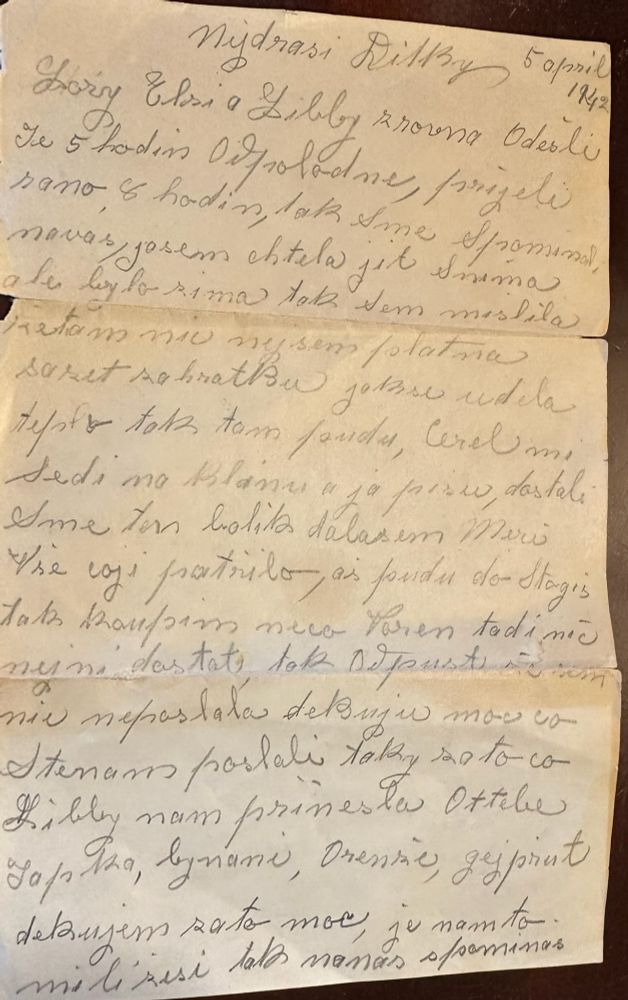 Nejdrasi Ditky 5 april
1942
Lory Elsi a Libby zrovna Odešli
Je 5 hodin Odpolodne, prijeli
rano, 6 hodin, tak sme Spominali
navas, jasem chtela jit Snima
ale bylo zima tak sem mislila
zetam nic nejsem platna
sazet zahratku jakse udela
teplo tak tam pudu, Cerel mi
Sedi na klinu a ja pisu, dostali
Sme ten balik dalasem Meri
Vše coji patrilo, as pudu do Stagis
tak koupim neco Voren tadi nic
nejni dostat, tak Odpust
nic neposlala dekuju moc co
Stenam poslali taky zato co
Libby nam přinesla Ottebe
Japka, bynani, Orenže, gejprut
dekujem zato moc, je namto
mili zesi tak nanas spominas